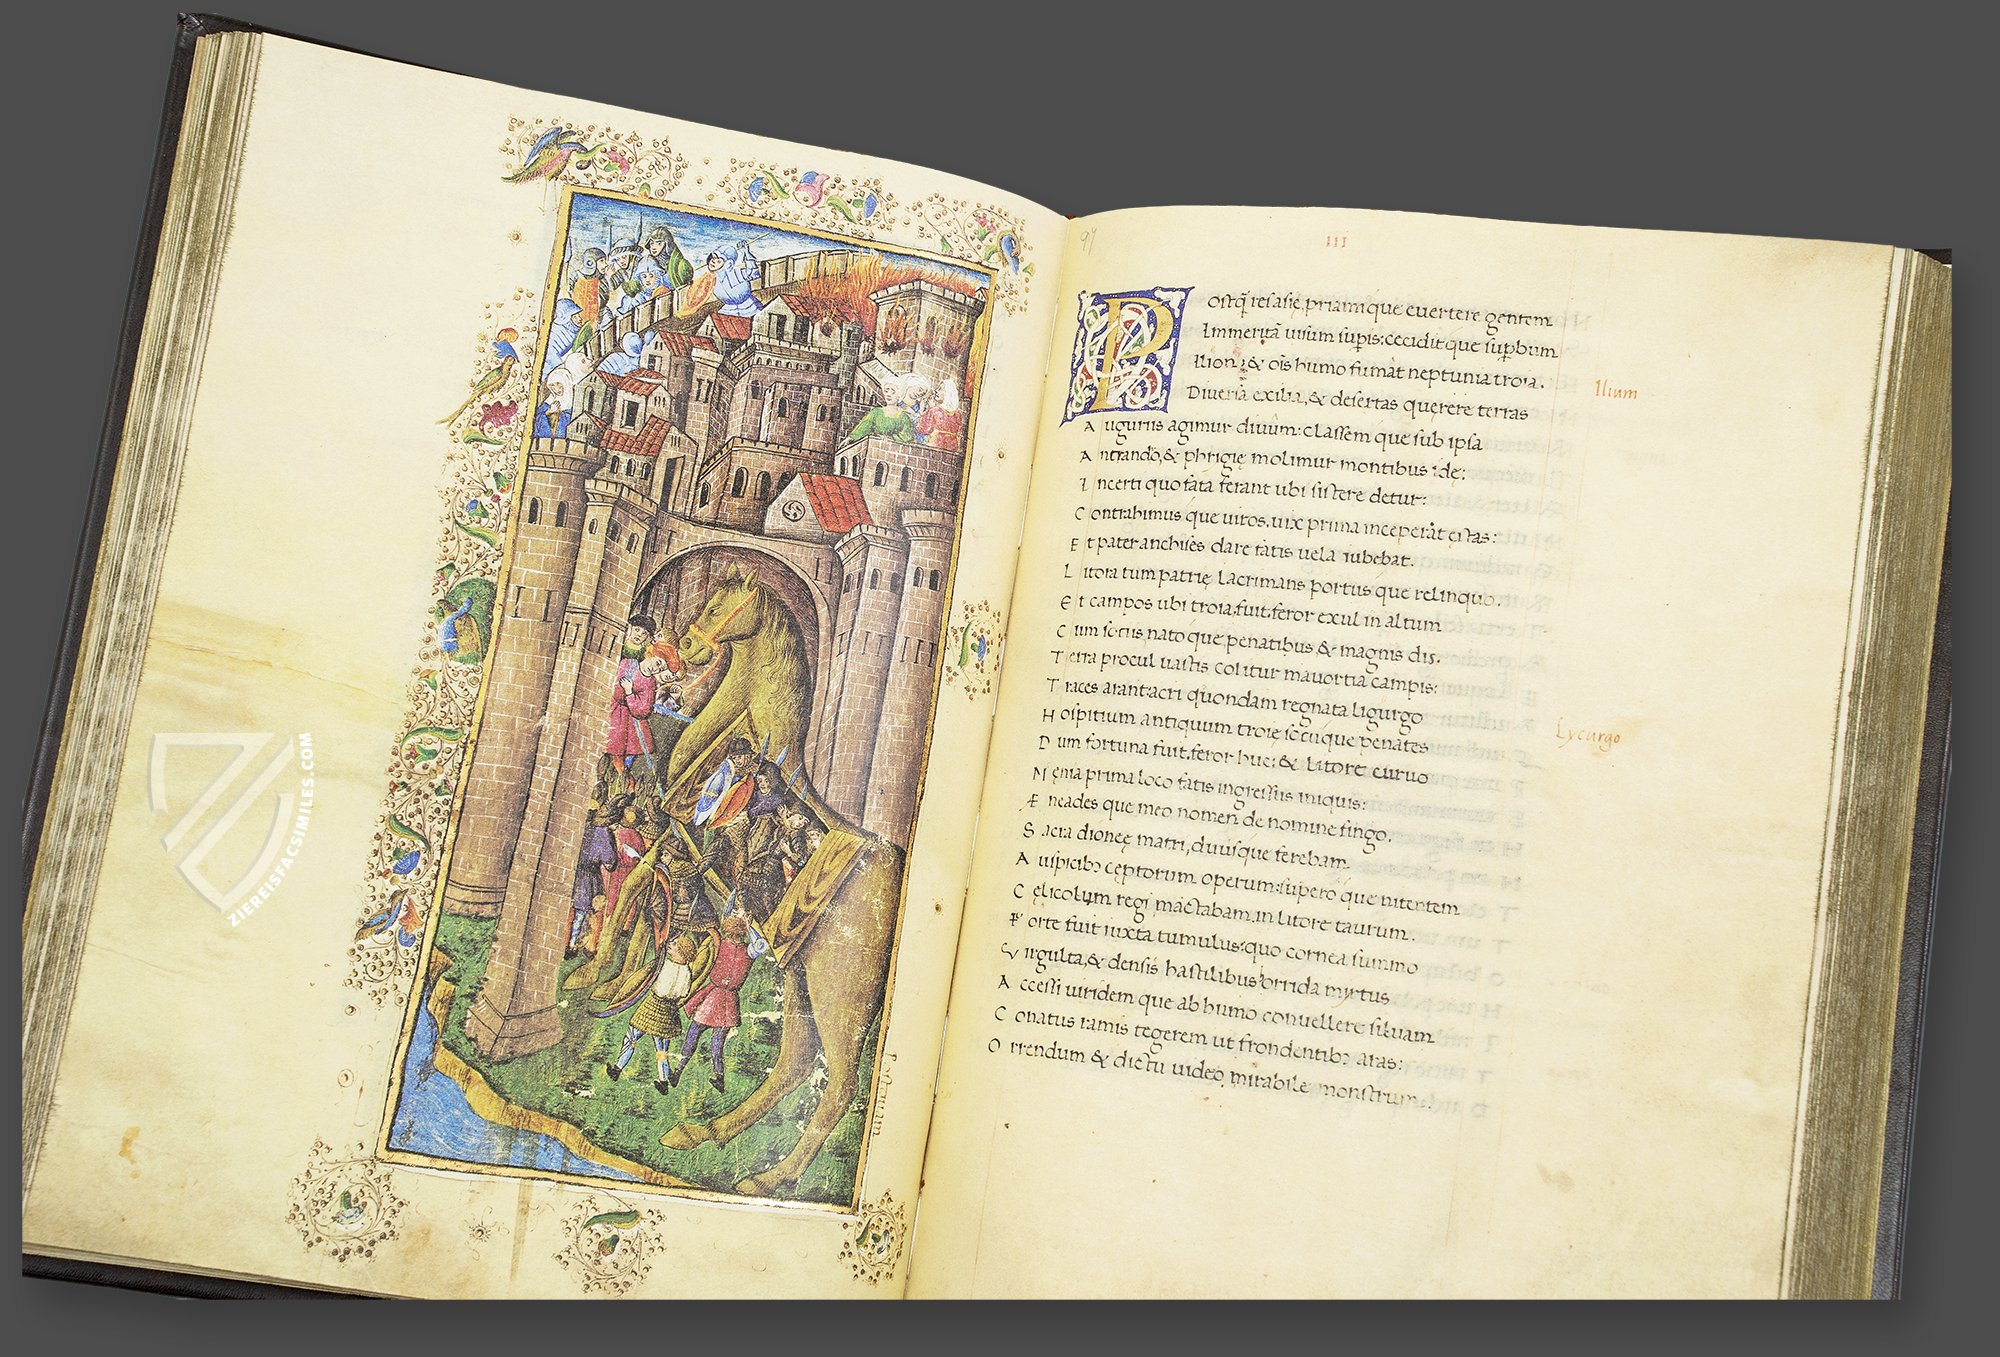 ZIEREISFACSIMILES.COM
97
III
Postq̃ res asię, priamique euertere gentem
Immeritã uisum supis: cecidit que supbum
Ilion: & oĩs humo fumãt neptunia troia.
Diuersa exilia, & desertas querere terras
Auguriis agimur diuum: classem que sub ipsa
Antandro, & phrigię molimur montibus ide:
Incerti quo fata ferant ubi sistere detur:
Contrahimus que uiros. uix prima inceperat ęstas:
Et pater anchises dare fatis uela iubebat.
Litora tum patrię lacrimans portus que relinquo.
Et campos ubi troia fuit. feror exul in altum
Cum sociis, nato que, penatibus, & magnis dis.
Terra procul uastis colitur mauortia campis:
Traces arant acri quondam regnata ligurgo
Hospitium antiquum troię socii que penates
Dum fortuna fuit. feror huc: & litore curuo
Menia prima loco fatis ingressus iniquis:
Æneades que meo nomen de nomine fingo.
Sacra dioneę matri, diuisque ferebam
Auspicibꝫ ceptorum operum: supero que nitentem
Cęlicolum regi mactabam. in litore taurum.
Forte fuit iuxta tumulus: quo cornea summo
Virgulta, & densis hastilibus orrida myrtus
Accessi uiridem que ab humo conuellere siluam
Conatus ramis tegerem ut frondentibꝫ aras:
Orrendum & dictu uideo mirabile monstrum.
Ilium
Lycurgo